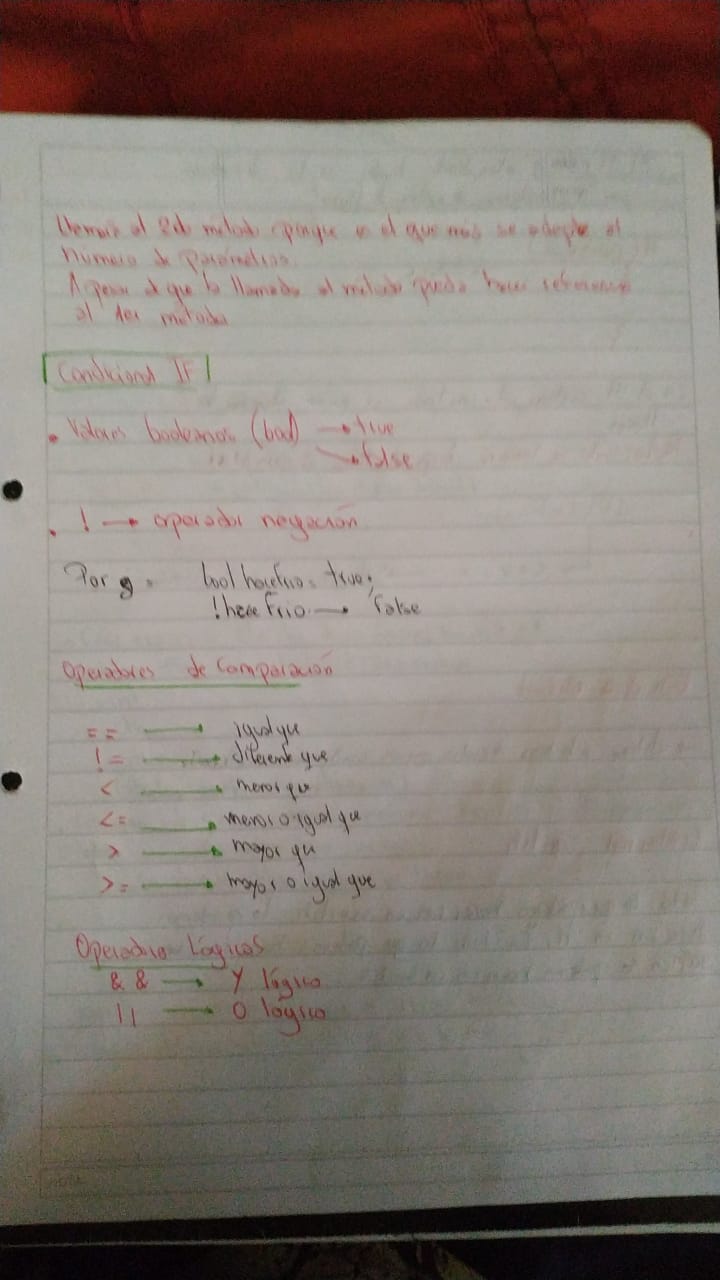 Llamará al 2do método porque es el que más se adapte al
número de parámetros.
A pesar de que la llamada al método pueda hacer referencia
al 1er método
Condicional IF
• Valores booleanos (bool) → true
→ false
• ! → operador negación
Por ej. bool haceFrio = true;
!haceFrio → false
Operadores de Comparación
== → igual que
!= → diferente que
< → menor que
<= → menor o igual que
> → mayor que
>= → mayor o igual que
Operadores Lógicos
&& → Y lógico
|| → O lógico